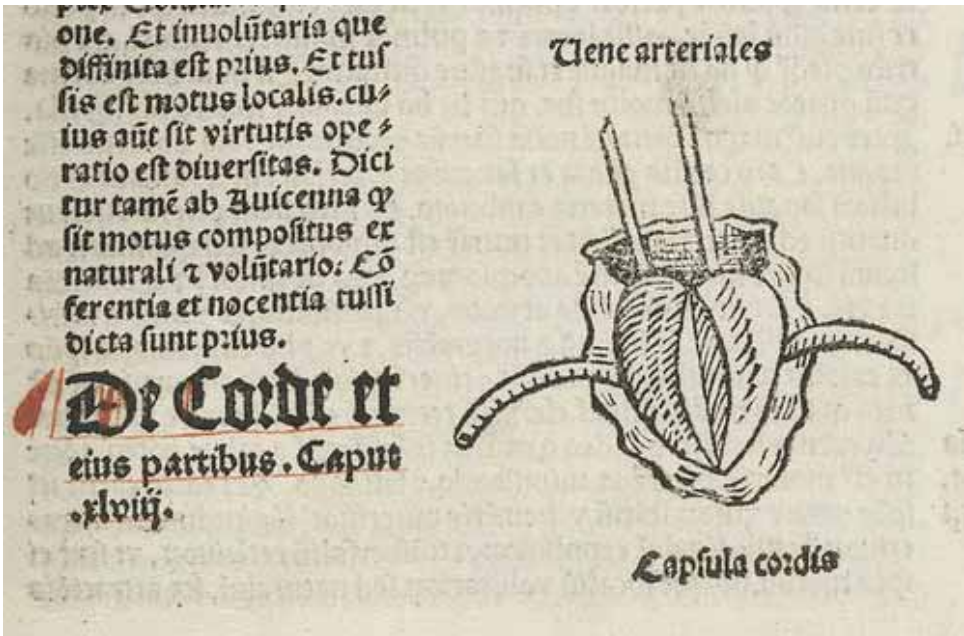 one. Et inuolūtaria que
diffinita est prius. Et tus
sis est motus localis. cu⸗
ius aūt sit virtutis ope⸗
ratio est diuersitas. Dici
tur tamē ab Auicenna ꝙ
sit motus compositus ex
naturali ⁊ volūtario. Cō
ferentia et nocentia tussi
dicta sunt prius.
De Corde et
eius partibus. Caput
.xlviij.
Uene arteriales
Capsula cordis